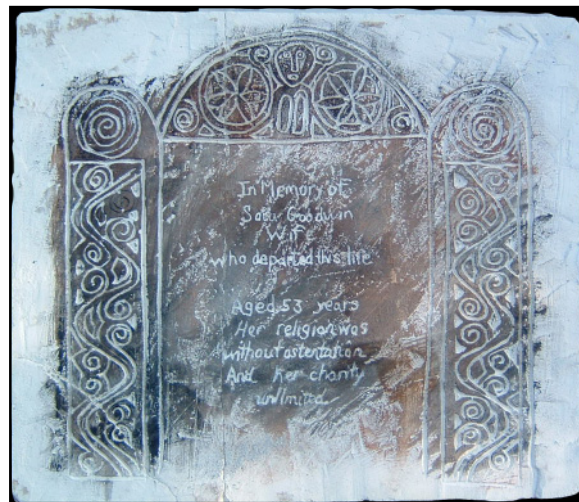 In Memory of
Goodwin
Wife
who departed this life
Aged 53 years
Her religion was
without ostentation
And her charity
unlimited